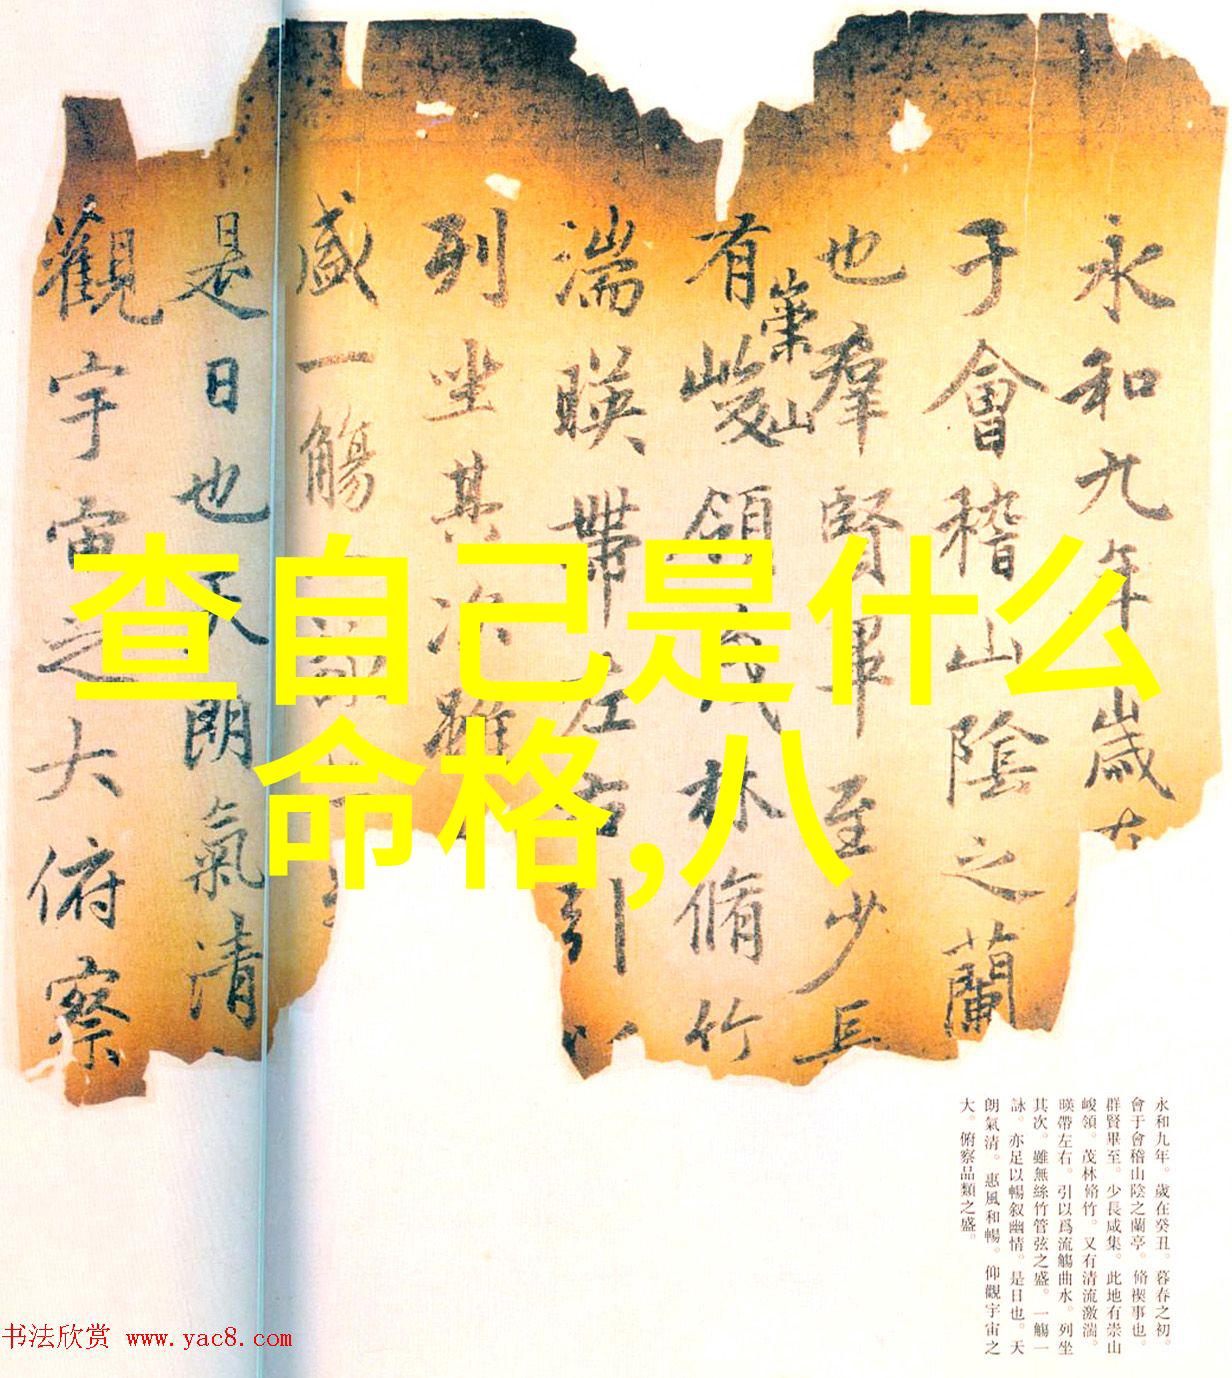 查自己是什么
命格,八
永和九年歲在
于會稽山陰之蘭
也羣賢畢至少長
有崇山峻領茂林脩竹
湍暎帶左右引以
列坐其次雖
盛一觴一詠
是日也天朗氣清
觀宇宙之大俯察
永和九年。歲在癸丑。暮春之初。
會于會稽山陰之蘭亭。脩禊事也。
群賢畢至。少長咸集。此地有崇山
峻領。茂林脩竹。又有清流激湍。
暎帶左右。引以爲流觴曲水。列坐
其次。雖無絲竹管弦之盛。一觴一
詠。亦足以暢叙幽情。是日也。天
朗氣清。惠風和暢。仰觀宇宙之
大。俯察品類之盛。
书法欣赏 www.yac8.com